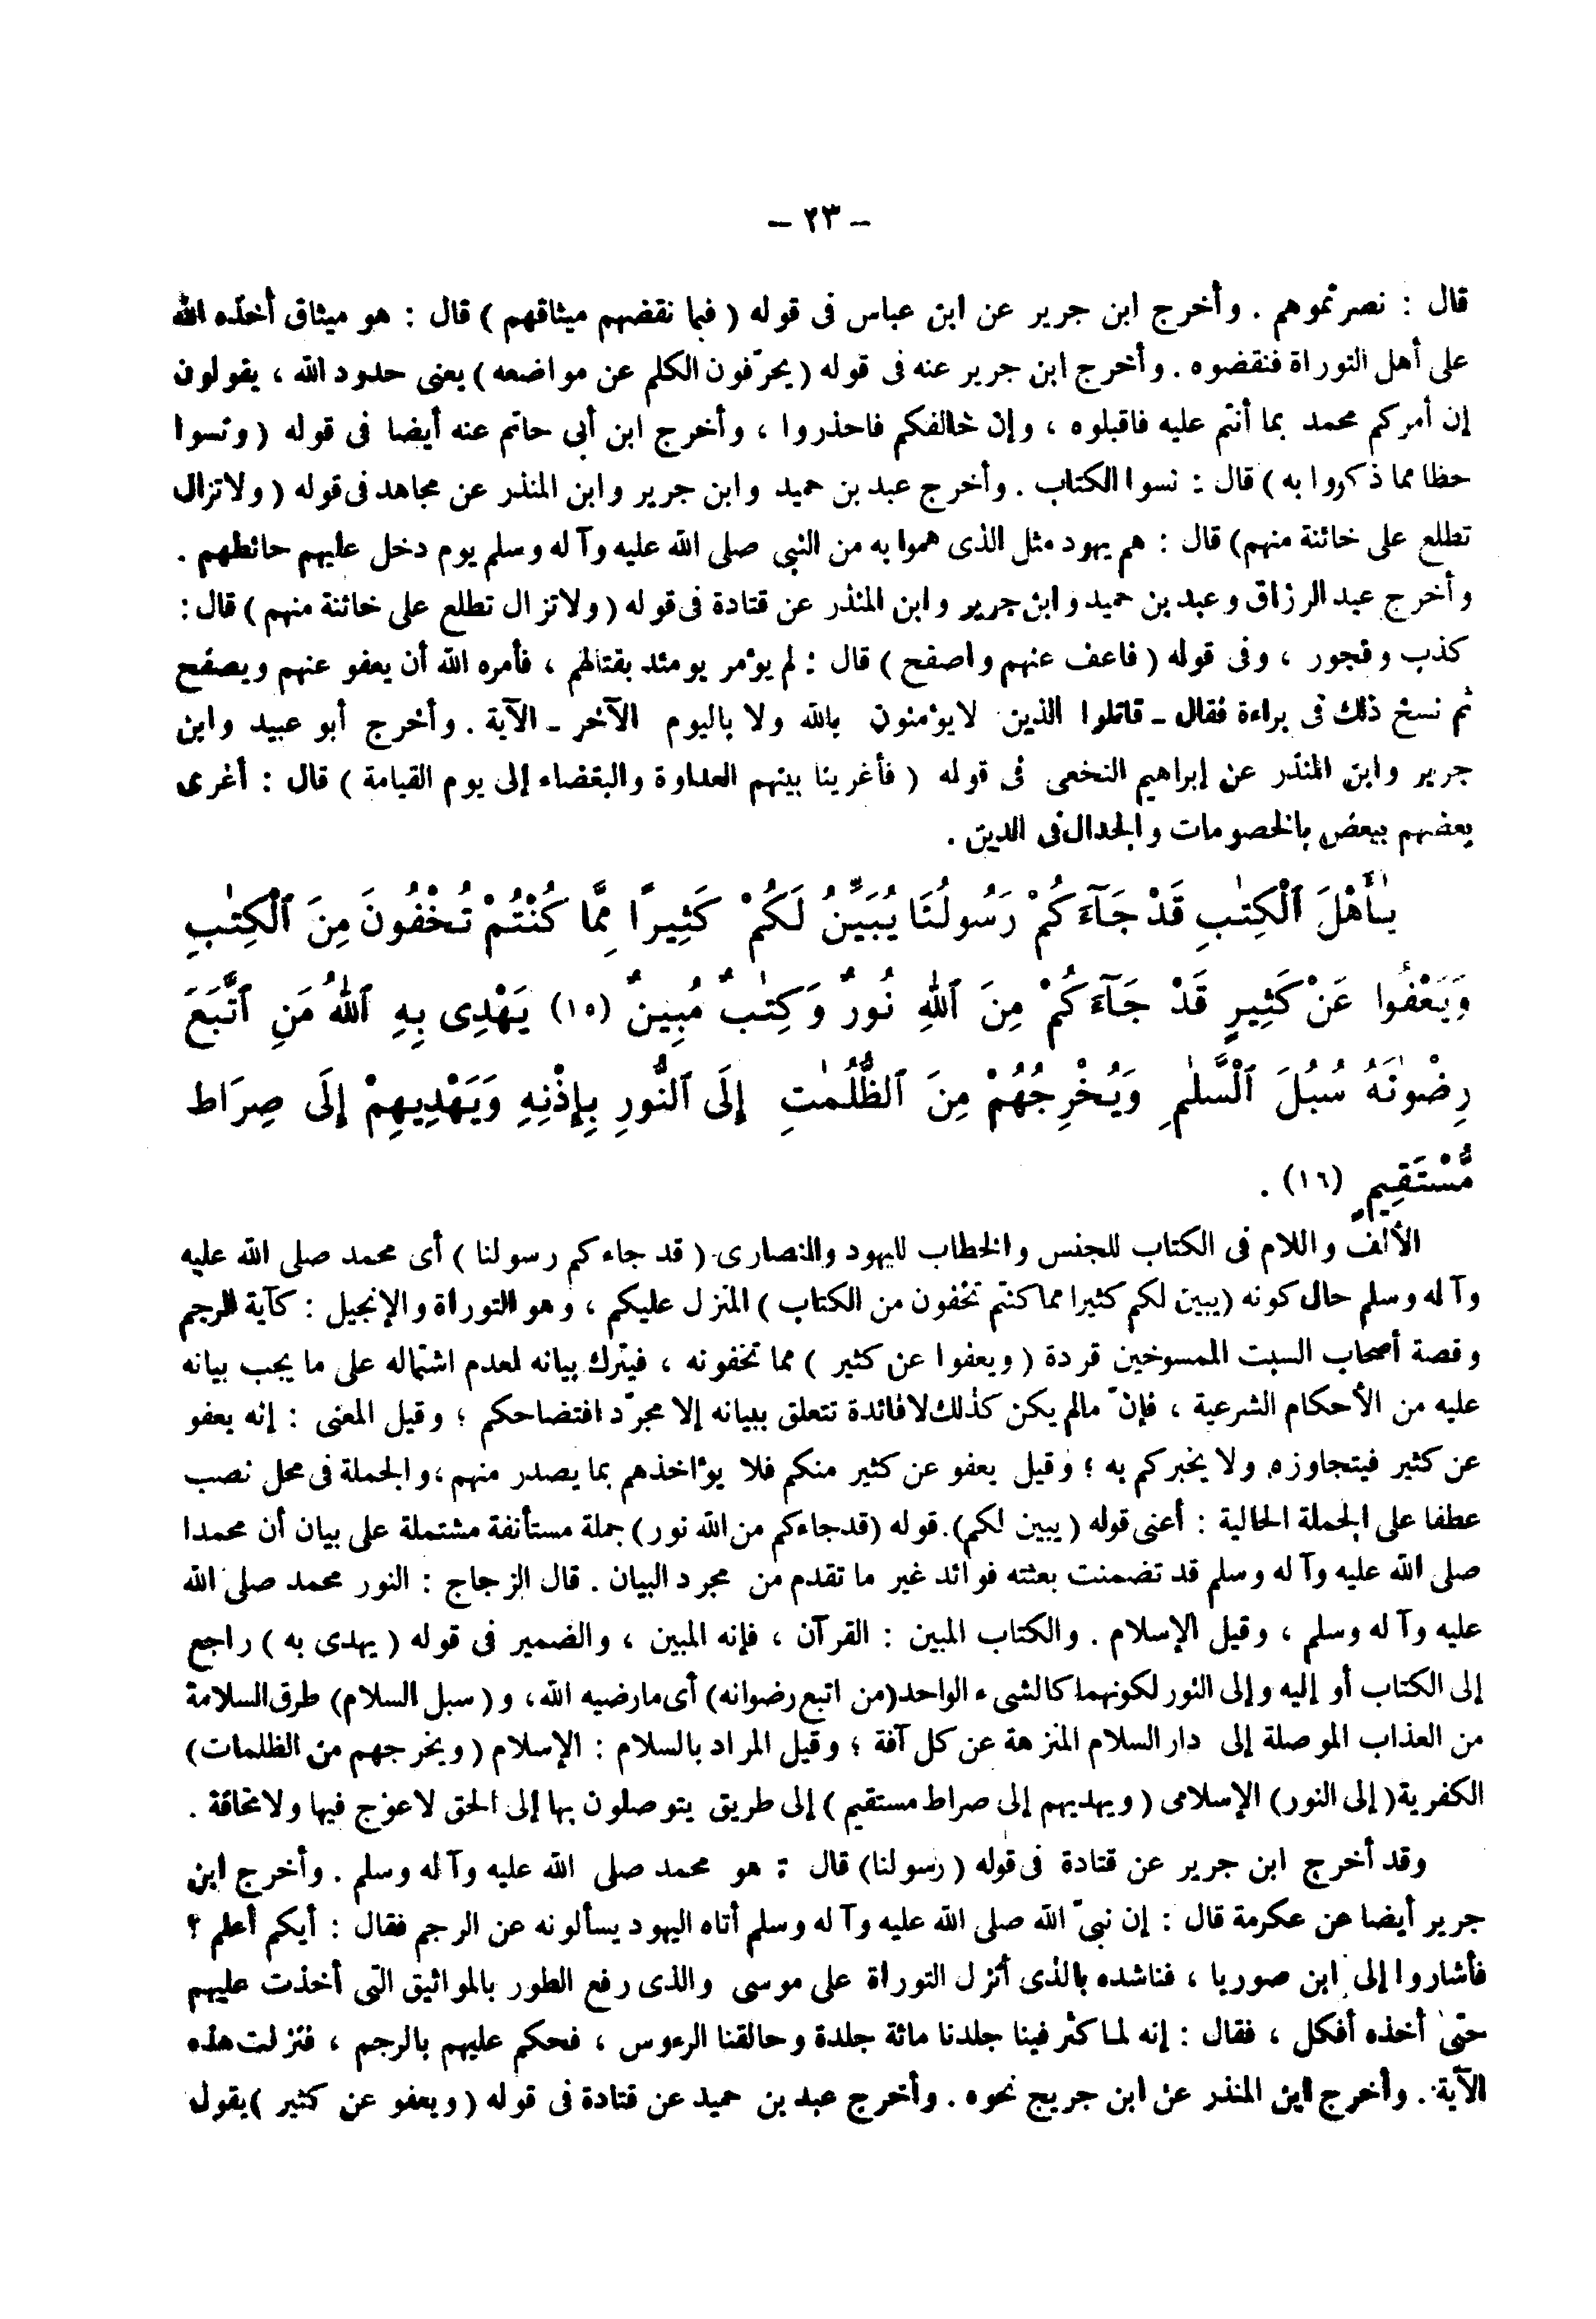 – ٢٣ –
قال : نصرتموهم . وأخرج ابن جرير عن ابن عباس فى قوله ( فبما نقضهم ميثاقهم ) قال : هو ميثاق أخذه الله
على أهل التوراة فنقضوه . وأخرج ابن جرير عنه فى قوله ( يحرّفون الكلم عن مواضعه ) يعنى حدود الله ، يقولون
إن أمركم محمد بما أنتم عليه فاقبلوه ، وإن خالفكم فاحذروا ، وأخرج ابن أبى حاتم عنه أيضا فى قوله ( ونسوا
حظا مما ذكروا به ) قال : نسوا الكتاب . وأخرج عبد بن حميد وابن جرير وابن المنذر عن مجاهد فى قوله ( ولا تزال
تطلع على خائنة منهم ) قال : هم يهود مثل الذى هموا به من النبى صلى الله عليه وآله وسلم يوم دخل عليهم حائطهم .
وأخرج عبد الرزاق وعبد بن حميد وابن جرير وابن المنذر عن قتادة فى قوله ( ولا تزال تطلع على خائنة منهم ) قال :
كذب وفجور ، وفى قوله ( فاعف عنهم واصفح ) قال : لم يؤمر يومئذ بقتالهم ، فأمره الله أن يعفو عنهم ويصفح
ثم نسخ ذلك فى براءة فقال ـ قاتلوا الذين لا يؤمنون بالله ولا باليوم الآخر ـ الآية . وأخرج أبو عبيد وابن
جرير وابن المنذر عن إبراهيم النخعى فى قوله ( فأغرينا بينهم العداوة والبغضاء إلى يوم القيامة ) قال : أغرى
بعضهم ببعض بالخصومات والجدال فى الدين .
يَٰٓأَهْلَ ٱلْكِتَٰبِ قَدْ جَآءَكُمْ رَسُولُنَا يُبَيِّنُ لَكُمْ كَثِيرًا مِّمَّا كُنْتُمْ تُخْفُونَ مِنَ ٱلْكِتَٰبِ
وَيَعْفُوا عَنْ كَثِيرٍ قَدْ جَآءَكُمْ مِنَ ٱللهِ نُورٌ وَكِتَٰبٌ مُبِينٌ (١٥) يَهْدِى بِهِ ٱللهُ مَنِ ٱتَّبَعَ
رِضْوَٰنَهُ سُبُلَ ٱلْسَّلَٰمِ وَيُخْرِجُهُمْ مِنَ ٱلظُّلُمَٰتِ إِلَى ٱلنُّورِ بِإِذْنِهِ وَيَهْدِيهِمْ إِلَى صِرَاط
مُّسْتَقِيمٍ (١٦) .
الألف واللام فى الكتاب للجنس والخطاب لليهود والنصارى ( قد جاءكم رسولنا ) أى محمد صلى الله عليه
وآله وسلم حال كونه ( يبين لكم كثيرا مما كنتم تخفون من الكتاب ) المنزل عليكم ، وهو التوراة والإنجيل : كآية الرجم
وقصة أصحاب السبت الممسوخين قردة ( ويعفوا عن كثير ) مما تخفونه ، فيترك بيانه لعدم اشتماله على ما يجب بيانه
عليه من الأحكام الشرعية ، فإنّ مالم يكن كذلك لا فائدة تتعلق ببيانه إلا مجرّد افتضاحكم ؛ وقيل المعنى : إنه يعفو
عن كثير فيتجاوزه ولا يخبركم به ؛ وقيل يعفو عن كثير منكم فلا يؤاخذهم بما يصدر منهم ، والجملة فى محل نصب
عطفا على الجملة الحالية : أعنى قوله ( يبين لكم ) . قوله ( قد جاءكم من الله نور ) جملة مستأنفة مشتملة على بيان أن محمدا
صلى الله عليه وآله وسلم قد تضمنت بعثته فوائد غير ما تقدم من مجرد البيان . قال الزجاج : النور محمد صلى الله
عليه وآله وسلم ، وقيل الإسلام . والكتاب المبين : القرآن ، فإنه المبين ، والضمير فى قوله ( يهدى به ) راجع
إلى الكتاب أو إليه وإلى النور لكونهما كالشىء الواحد ( من اتبع رضوانه ) أى مارضيه الله ، و ( سبل السلام ) طرق السلامة
من العذاب الموصلة إلى دار السلام المنزهة عن كل آفة ؛ وقيل المراد بالسلام : الإسلام ( ويخرجهم من الظلمات )
الكفرية ( إلى النور ) الإسلامى ( ويهديهم إلى صراط مستقيم ) إلى طريق يتوصلون بها إلى الحق لا عوج فيها ولا مخافة .
وقد أخرج ابن جرير عن قتادة فى قوله ( رسولنا ) قال : هو محمد صلى الله عليه وآله وسلم . وأخرج ابن
جرير أيضا عن عكرمة قال : إن نبىّ الله صلى الله عليه وآله وسلم أتاه اليهود يسألونه عن الرجم فقال : أيكم أعلم ؟
فأشاروا إلى ابن صوريا ، فناشده بالذى أنزل التوراة على موسى والذى رفع الطور بالمواثيق التى أخذت عليهم
حتى أخذه أفكل ، فقال : إنه لما كثر فينا جلدنا مائة جلدة وحالقنا الرءوس ، فحكم عليهم بالرجم ، فنزلت هذه
الآية . وأخرج ابن المنذر عن ابن جريج نحوه . وأخرج عبد بن حميد عن قتادة فى قوله ( ويعفو عن كثير ) يقول